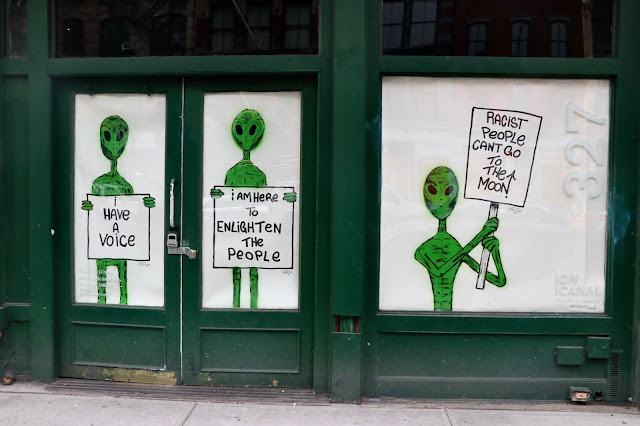 i
HAVE
A
VOiCE
i AM HERE
TO
ENLiGHTEN
THE
PEOPLE
RACiST
PEOPLE
CANT GO
TO
THE
MOON!
327
ION
CANAL